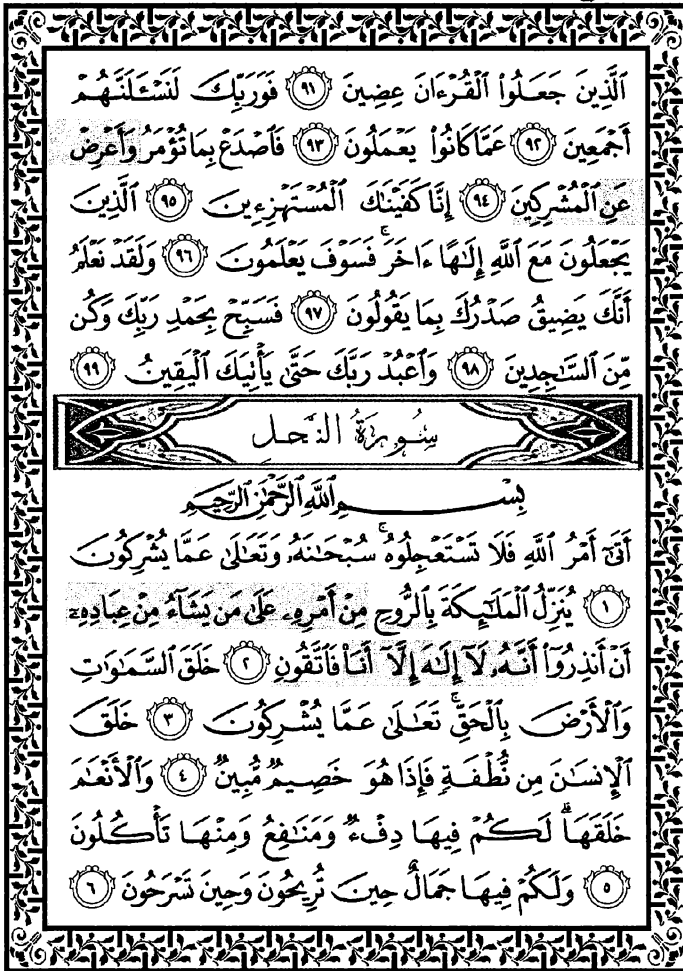 ٱلَّذِينَ جَعَلُوا۟ ٱلْقُرْءَانَ عِضِينَ ٩١ فَوَرَبِّكَ لَنَسْـَٔلَنَّهُمْ
أَجْمَعِينَ ٩٢ عَمَّا كَانُوا۟ يَعْمَلُونَ ٩٣ فَٱصْدَعْ بِمَا تُؤْمَرُ وَأَعْرِضْ
عَنِ ٱلْمُشْرِكِينَ ٩٤ إِنَّا كَفَيْنَٰكَ ٱلْمُسْتَهْزِءِينَ ٩٥ ٱلَّذِينَ
يَجْعَلُونَ مَعَ ٱللَّهِ إِلَٰهًا ءَاخَرَ ۚ فَسَوْفَ يَعْلَمُونَ ٩٦ وَلَقَدْ نَعْلَمُ
أَنَّكَ يَضِيقُ صَدْرُكَ بِمَا يَقُولُونَ ٩٧ فَسَبِّحْ بِحَمْدِ رَبِّكَ وَكُن
مِّنَ ٱلسَّٰجِدِينَ ٩٨ وَٱعْبُدْ رَبَّكَ حَتَّىٰ يَأْتِيَكَ ٱلْيَقِينُ ٩٩
سُورَةُ النَّحْلِ
بِسْمِ ٱللَّهِ ٱلرَّحْمَٰنِ ٱلرَّحِيمِ
أَتَىٰٓ أَمْرُ ٱللَّهِ فَلَا تَسْتَعْجِلُوهُ ۚ سُبْحَٰنَهُۥ وَتَعَٰلَىٰ عَمَّا يُشْرِكُونَ
١ يُنَزِّلُ ٱلْمَلَٰٓئِكَةَ بِٱلرُّوحِ مِنْ أَمْرِهِۦ عَلَىٰ مَن يَشَآءُ مِنْ عِبَادِهِۦٓ
أَنْ أَنذِرُوٓا۟ أَنَّهُۥ لَآ إِلَٰهَ إِلَّآ أَنَا۠ فَٱتَّقُونِ ٢ خَلَقَ ٱلسَّمَٰوَٰتِ
وَٱلْأَرْضَ بِٱلْحَقِّ ۚ تَعَٰلَىٰ عَمَّا يُشْرِكُونَ ٣ خَلَقَ
ٱلْإِنسَٰنَ مِن نُّطْفَةٍ فَإِذَا هُوَ خَصِيمٌ مُّبِينٌ ٤ وَٱلْأَنْعَٰمَ
خَلَقَهَا ۗ لَكُمْ فِيهَا دِفْءٌ وَمَنَٰفِعُ وَمِنْهَا تَأْكُلُونَ
٥ وَلَكُمْ فِيهَا جَمَالٌ حِينَ تُرِيحُونَ وَحِينَ تَسْرَحُونَ ٦